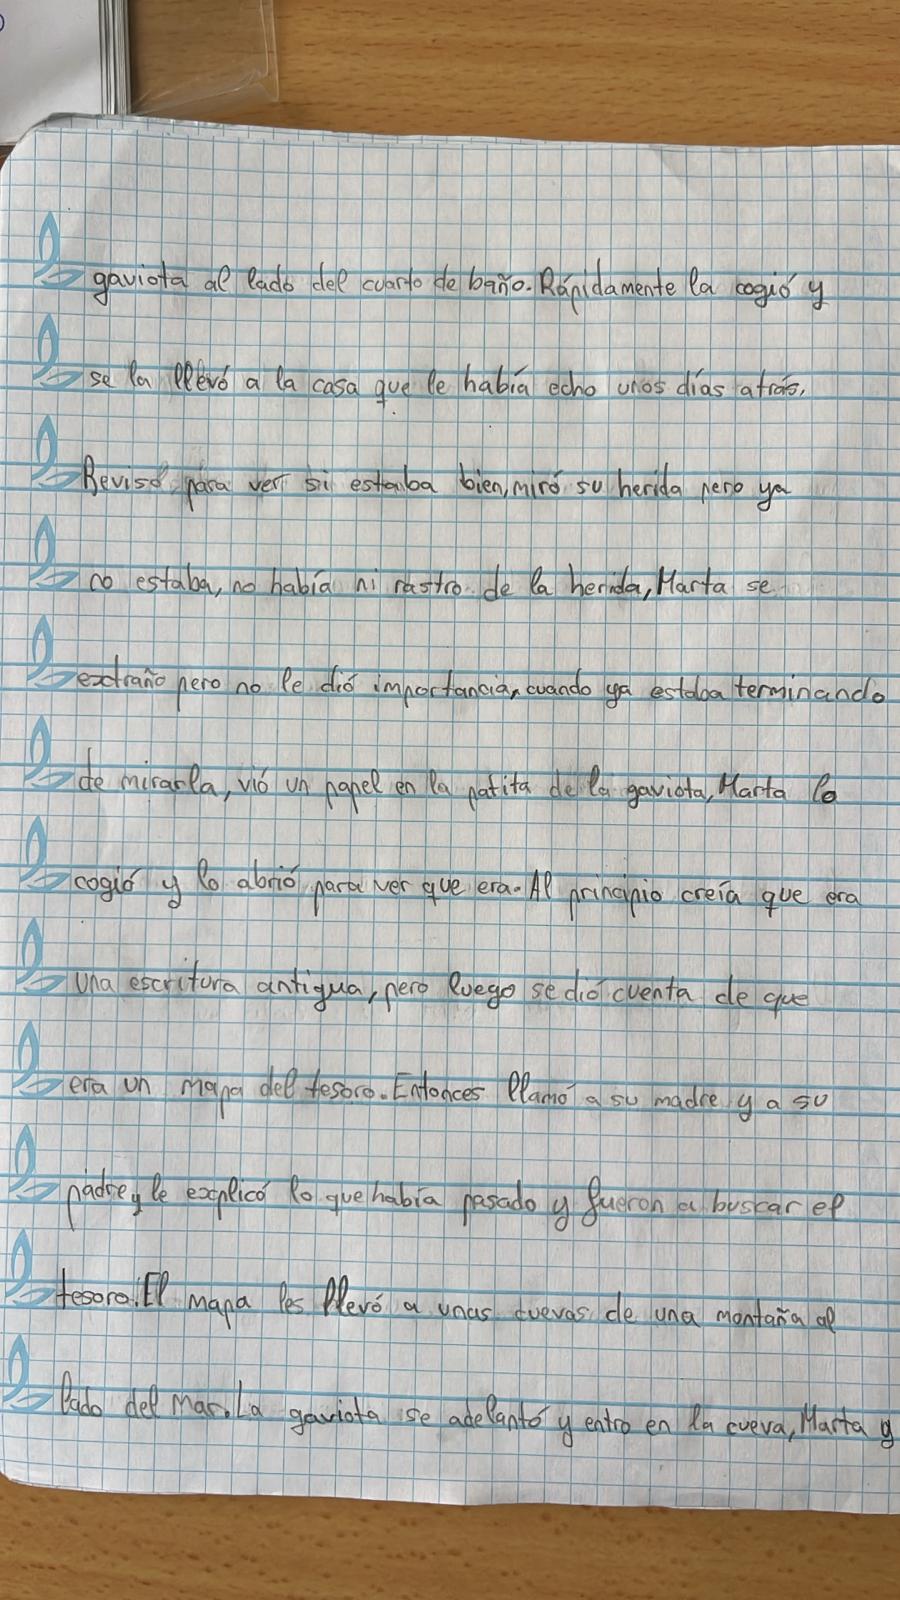 gaviota al lado del cuarto de baño. Rápidamente la cogió y
se la llevó a la casa que le había echo unos días atrás.
Reviso para ver si estaba bien, miró su herida pero ya
no estaba, no había ni rastro de la herida, Marta se
extraño pero no le dió importancia, cuando ya estaba terminando
de mirarla, vió un papel en la patita de la gaviota, Marta lo
cogió y lo abrió para ver que era. Al principio creía que era
una escritura antigua, pero luego se dió cuenta de que
era un mapa del tesoro. Entonces llamó a su madre y a su
padre y le explicó lo que había pasado y fueron a buscar el
tesoro. El mapa les llevó a unas cuevas de una montaña al
lado del mar. La gaviota se adelantó y entro en la cueva, Marta y